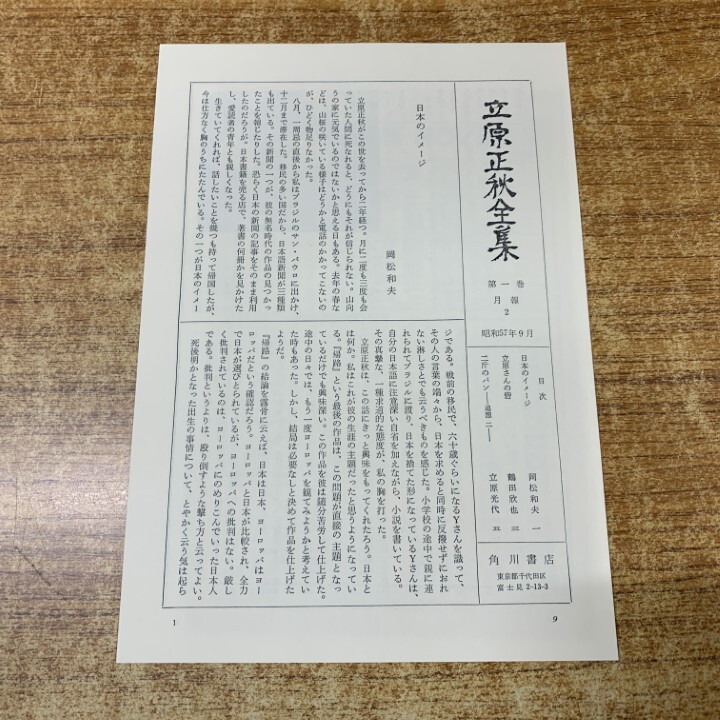 立原正秋全集
第一巻
月報
2
昭和57年9月
目次
日本のイメージ 岡松和夫 一
立原さんの砦 鶴田欣也 三
二斤のパン―追想 二― 立原光代 五
角川書店
東京都千代田区
富士見2-13-3
日本のイメージ
岡松和夫
立原正秋がこの世を去ってから二年経つ。月に二度も三度も会
っていた人間に死なれると、どうにもそれが信じられない。山向
うの家に元気でいるのではないかと思える日もある。去年の春な
どは、山桜の咲いている様子はどうかと電話のかかってこないの
が、ひどく物足りなかった。
八月、一周忌の直後から私はブラジルのサン・パウロに出かけ、
十二月まで滞在した。移民の多い国だから、日本語新聞が三種類
も出ている。その新聞の一つが、彼の無名時代の作品の見つかっ
たことを報じたりした。恐らく日本の新聞の記事をそのまま利用
したのだろうが。日本書籍を売る店で、著書の何冊かを見かけた
し、愛読者の青年とも親しくなった。
生きていてくれれば、話したいことを幾つも持って帰国したが、
今は仕方なく胸のうちにたたんでいる。その一つが日本のイメー
ジである。戦前の移民で、六十歳ぐらいになるYさんを識って、
その人の言葉の端々から、日本を求めると同時に反撥せずにおれ
ない淋しさとでも云うべきものを感じた。小学校の途中で親に連
れられてブラジルに渡り、日本を捨てた形になっているYさんは、
自分の日本語に注意深い自省を加えながら、小説を書いている。
その真摯な、一種求道的な態度が、私の胸を打った。
立原正秋は、この話にきっと興味をもってくれたろう。日本と
は何か。私はこれが彼の生涯の主題だったと思うようになってい
る。『帰路』という最後の作品は、この問題が直接の主題となっ
ているだけでも興味深い。この作品を彼は随分苦労して仕上げた。
途中の日々では、もう一度ヨーロッパを観てみようかと考えてい
た時もあった。しかし、結局は必要なしと決めて作品を仕上げた
ようだ。
『帰路』の結論を露骨に云えば、日本は日本、ヨーロッパはヨー
ロッパだという確認だろう。ヨーロッパと日本が比較され、全力
で日本が選びとられているが、ヨーロッパへの批判はない。厳し
く批判されているのは、ヨーロッパにのめりこんでいった日本人
である。批判というよりは、殴り倒すような撃ち方と云ってよい。
死後明かとなった出生の事情について、とやかく云う気は起ら
1
9